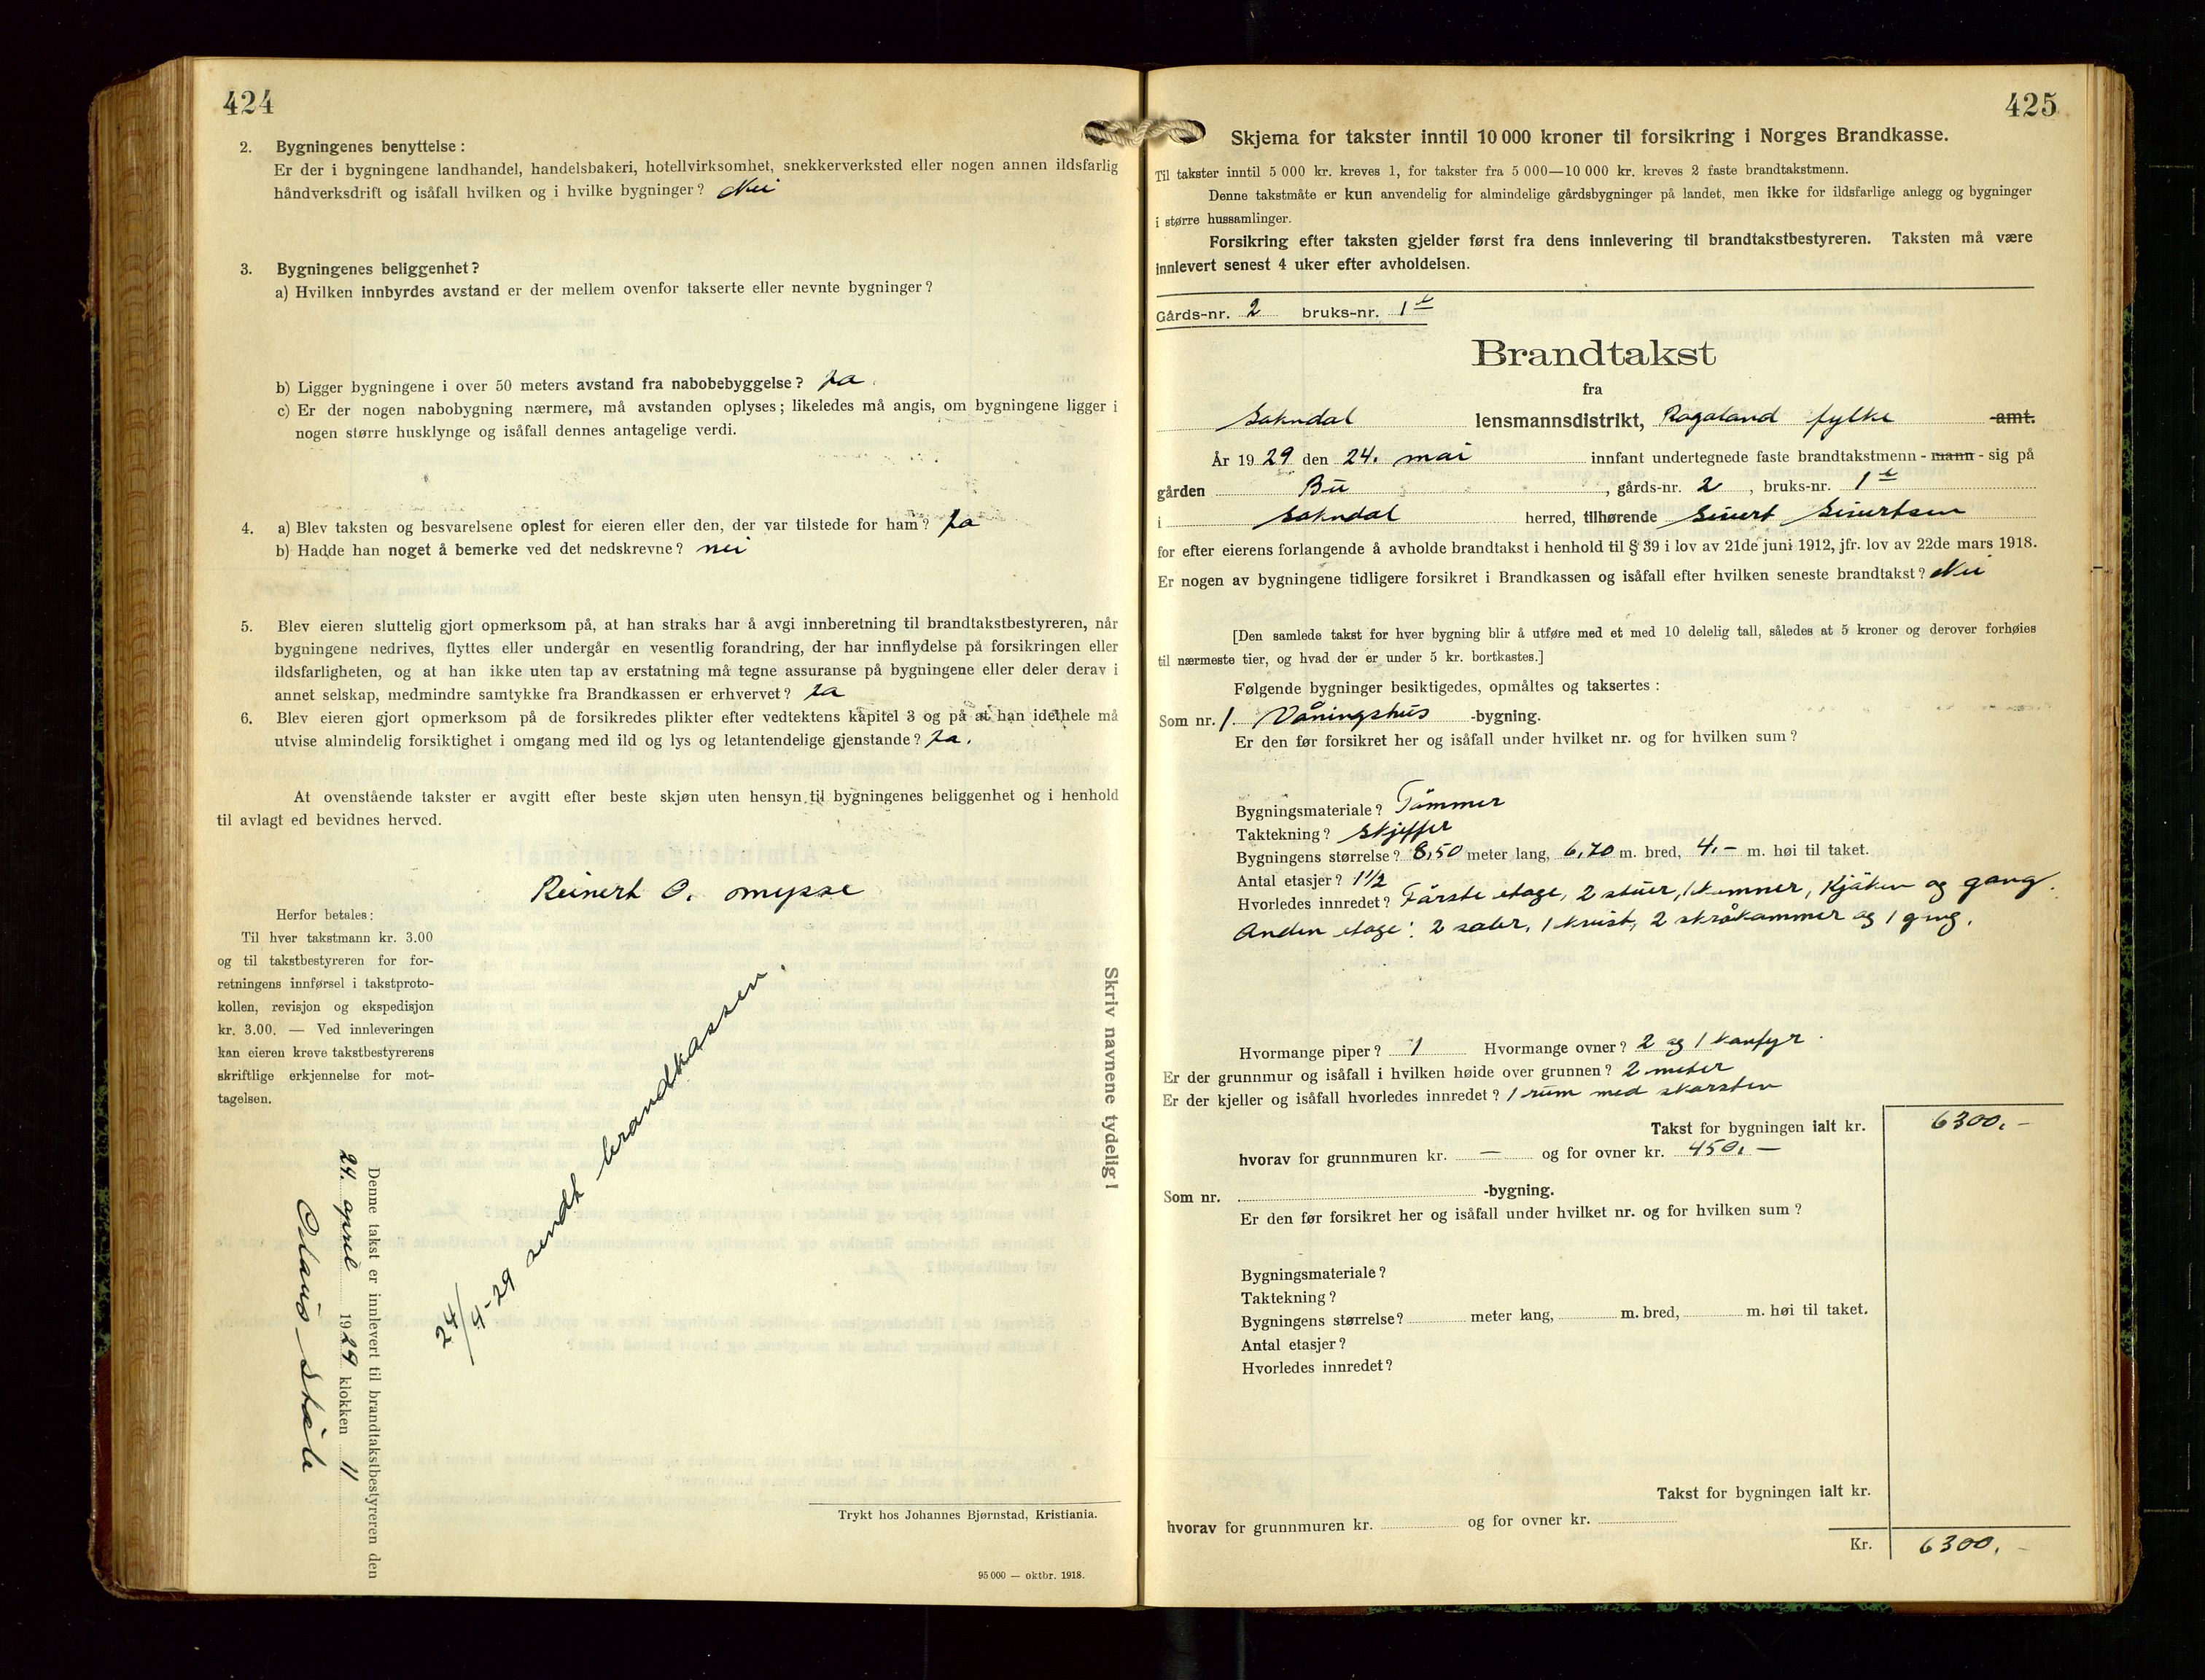 424
2. Bygningenes benyttelse:
Er der i bygningene landhandel, handelsbakeri, hotellvirksomhet, snekkerverksted eller nogen annen ildsfarlig
håndverksdrift og isåfall hvilken og i hvilke bygninger? Nei
3. Bygningenes beliggenhet?
a) Hvilken innbyrdes avstand er der mellem ovenfor takserte eller nevnte bygninger?
b) Ligger bygningene i over 50 meters avstand fra nabobebyggelse? Ja.
c) Er der nogen nabobygning nærmere, må avstanden oplyses; likeledes må angis, om bygningene ligger i
nogen større husklynge og isåfall dennes antagelige verdi.
4. a) Blev taksten og besvarelsene oplest for eieren eller den, der var tilstede for ham? Ja
b) Hadde han noget å bemerke ved det nedskrevne? nei
5. Blev eieren sluttelig gjort opmerksom på, at han straks har å avgi innberetning til brandtakstbestyreren, når
bygningene nedrives, flyttes eller undergår en vesentlig forandring, der har innflydelse på forsikringen eller
ildsfarligheten, og at han ikke uten tap av erstatning må tegne assuranse på bygningene eller deler derav i
annet selskap, medmindre samtykke fra Brandkassen er erhvervet? Ja
6. Blev eieren gjort opmerksom på de forsikredes plikter efter vedtektens kapitel 3 og på at han idethele må
utvise almindelig forsiktighet i omgang med ild og lys og letantendelige gjenstande? Ja.
At ovenstående takster er avgitt efter beste skjøn uten hensyn til bygningenes beliggenhet og i henhold
til avlagt ed bevidnes herved.
Reinert O. Mysse
Herfor betales:
Til hver takstmann kr. 3.00
og til takstbestyreren for for-
retningens innførsel i takstproto-
kollen, revisjon og ekspedisjon
kr. 3.00. — Ved innleveringen
kan eieren kreve takstbestyrerens
skriftlige erkjennelse for mot-
tagelsen.
Denne takst er innlevert til brandtakstbestyreren den
24. april 1929 klokken 11
Olaus Ståle
24/5-29 sendt brandkassen.
Skriv navnene tydelig!
Trykt hos Johannes Bjørnstad, Kristiania.
95 000 — oktbr. 1918.
425
Skjema for takster inntil 10 000 kroner til forsikring i Norges Brandkasse.
Til takster inntil 5 000 kr. kreves 1, for takster fra 5 000—10 000 kr. kreves 2 faste brandtakstmenn.
Denne takstmåte er kun anvendelig for almindelige gårdsbygninger på landet, men ikke for ildsfarlige anlegg og bygninger
i større hussamlinger.
Forsikring efter taksten gjelder først fra dens innlevering til brandtakstbestyreren. Taksten må være
innlevert senest 4 uker efter avholdelsen.
Gårds-nr. 2 bruks-nr. 1
Brandtakst
fra
Sokndal lensmannsdistrikt, Rogaland fylke amt.
År 1929 den 24. mai innfant undertegnede faste brandtakstmenn - mann - sig på
gården Bu, gårds-nr. 2, bruks-nr. 1
i Sokndal herred, tilhørende Sivert Sivertsen
for efter eierens forlangende å avholde brandtakst i henhold til § 39 i lov av 21de juni 1912, jfr. lov av 22de mars 1918.
Er nogen av bygningene tidligere forsikret i Brandkassen og isåfall efter hvilken seneste brandtakst? Nei
[Den samlede takst for hver bygning blir å utføre med et med 10 delelig tall, således at 5 kroner og derover forhøies
til nærmeste tier, og hvad der er under 5 kr. bortkastes.]
Følgende bygninger besiktigedes, opmåltes og taksertes:
Som nr. 1. Våningshus -bygning.
Er den før forsikret her og isåfall under hvilket nr. og for hvilken sum?
Bygningsmateriale? Tømmer
Taktekning? Skjeffer
Bygningens størrelse? 8,50 meter lang, 6,70 m. bred, 4.- m. høi til taket.
Antal etasjer? 1 1/2
Hvorledes innredet? Første etage, 2 stuer, 1 kammer, Kjøken og gang.
Anden etage: 2 saler, 1 kvist, 2 skråkammer og 1 gang.
Hvormange piper? 1 Hvormange ovner? 2 og 1 komfyr.
Er der grunnmur og isåfall i hvilken høide over grunnen? 2 meter
Er der kjeller og isåfall hvorledes innredet? 1 rum med skorsten
Takst for bygningen ialt kr. 6300.-
hvorav for grunnmuren kr. — og for ovner kr. 450.-
Som nr. -bygning.
Er den før forsikret her og isåfall under hvilket nr. og for hvilken sum?
Bygningsmateriale?
Taktekning?
Bygningens størrelse? meter lang, m. bred, m. høi til taket.
Antal etasjer?
Hvorledes innredet?
Takst for bygningen ialt kr.
hvorav for grunnmuren kr. og for ovner kr.
Kr. 6300.-